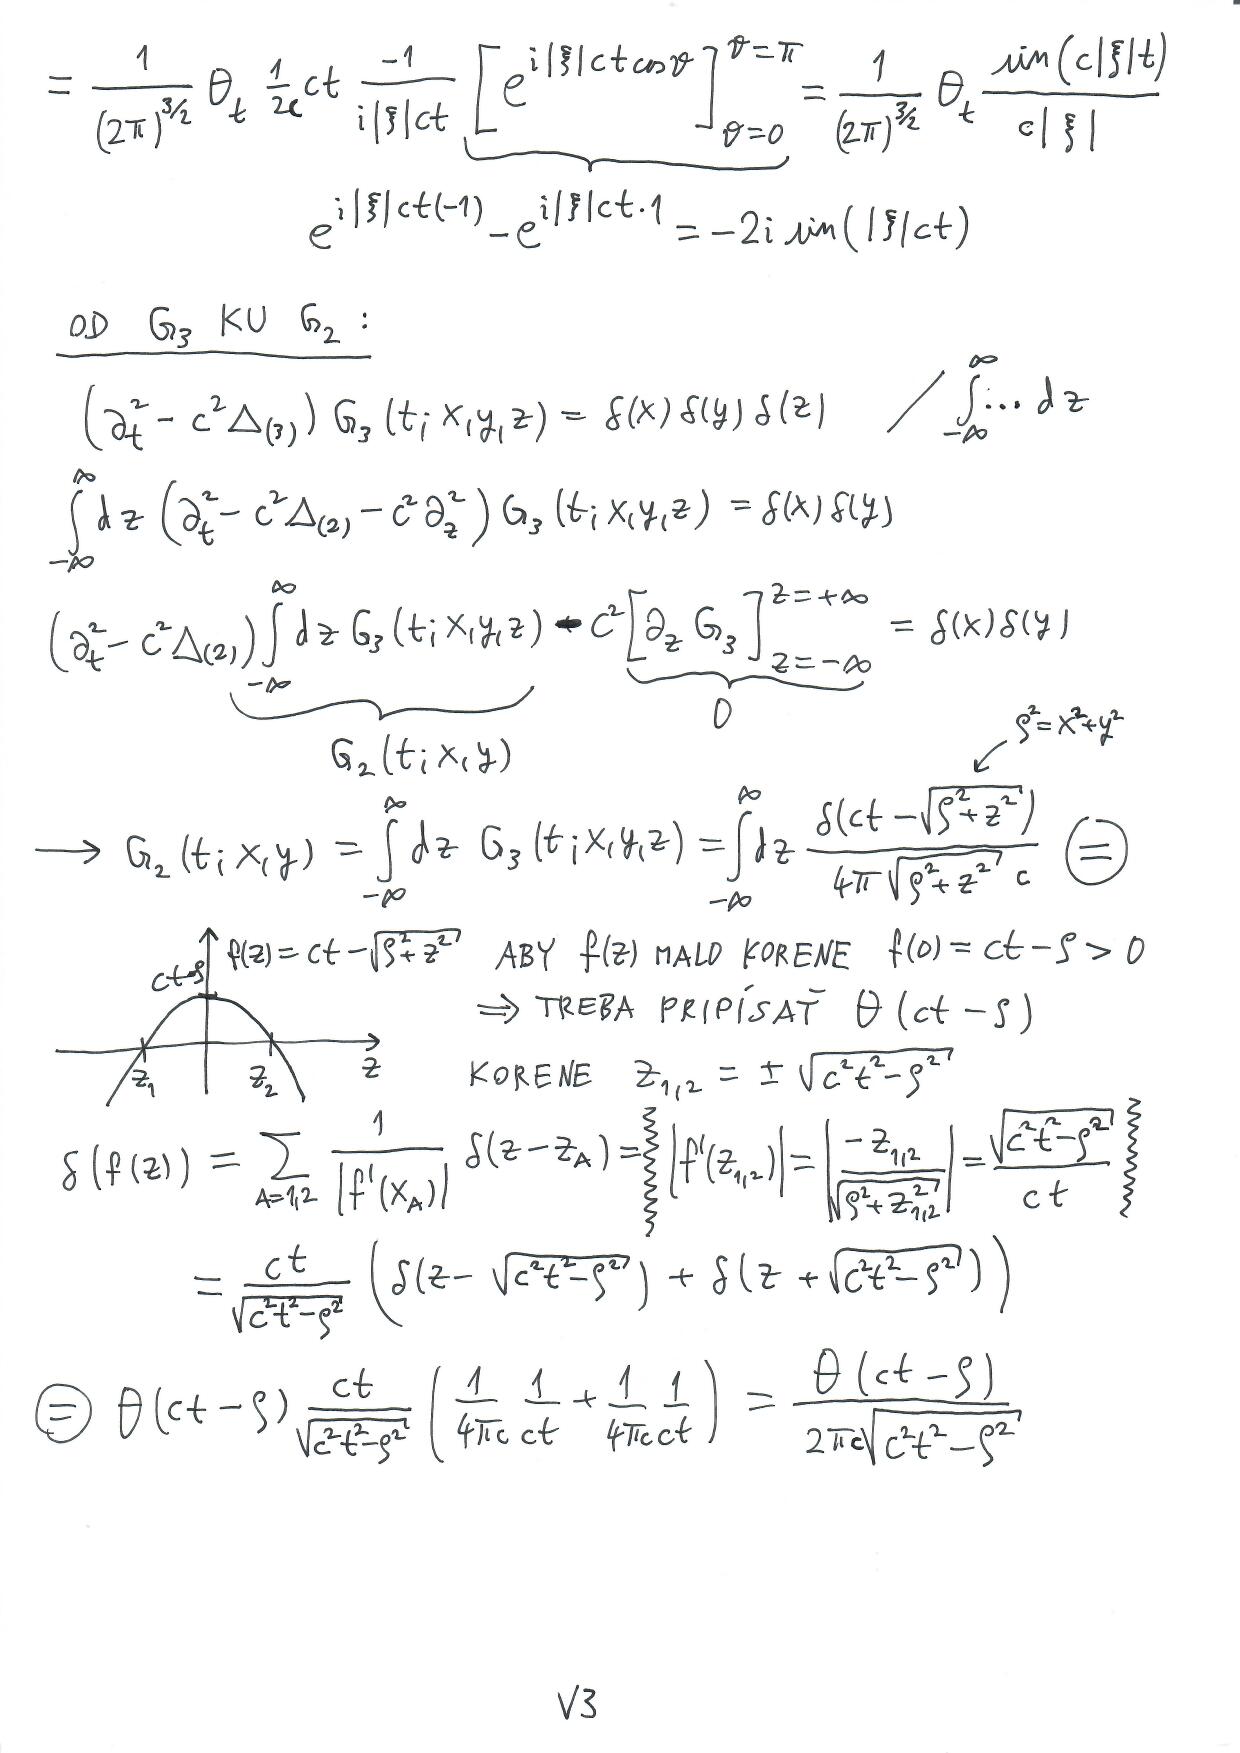 = 1/(2π)^{3/2} θ_t 1/2c ct -1/(i|ξ|ct) [e^{i|ξ|ct cosϑ}]_{ϑ=0}^{ϑ=π} = 1/(2π)^{3/2} θ_t sin(c|ξ|t)/(c|ξ|)
e^{i|ξ|ct(-1)} - e^{i|ξ|ct·1} = -2i sin(|ξ|ct)
OD G₃ KU G₂ :
(∂_t² - c²Δ_{(3)}) G₃(t; x,y,z) = δ(x) δ(y) δ(z) / ∫_{-∞}^{∞} ... dz
∫_{-∞}^{∞} dz (∂_t² - c²Δ_{(2)} - c²∂_z²) G₃(t; x,y,z) = δ(x) δ(y)
(∂_t² - c²Δ_{(2)}) ∫_{-∞}^{∞} dz G₃(t; x,y,z) - c² [∂_z G₃]_{z=-∞}^{z=+∞} = δ(x)δ(y)
G₂(t; x,y) 0 ρ² = x²+y²
→ G₂(t; x,y) = ∫_{-∞}^{∞} dz G₃(t; x,y,z) = ∫_{-∞}^{∞} dz δ(ct - √(ρ²+z²)) / (4π√(ρ²+z²) c) ⊜
ct-ρ f(z) = ct - √(ρ²+z²) ABY f(z) MALO KORENE f(0) = ct - ρ > 0
⇒ TREBA PRIPÍSAŤ θ(ct - ρ)
z₁ z₂ z KORENE z_{1,2} = ± √(c²t² - ρ²)
δ(f(z)) = Σ_{A=1,2} 1/|f'(x_A)| δ(z - z_A) = { |f'(z_{1,2})| = |-z_{1,2}/√(ρ²+z²_{1,2})| = √(c²t²-ρ²)/ct }
= ct/√(c²t²-ρ²) (δ(z - √(c²t²-ρ²)) + δ(z + √(c²t²-ρ²)))
⊜ θ(ct - ρ) ct/√(c²t²-ρ²) (1/4πc 1/ct + 1/4πc 1/ct) = θ(ct - ρ) / (2πc√(c²t²-ρ²))
V3